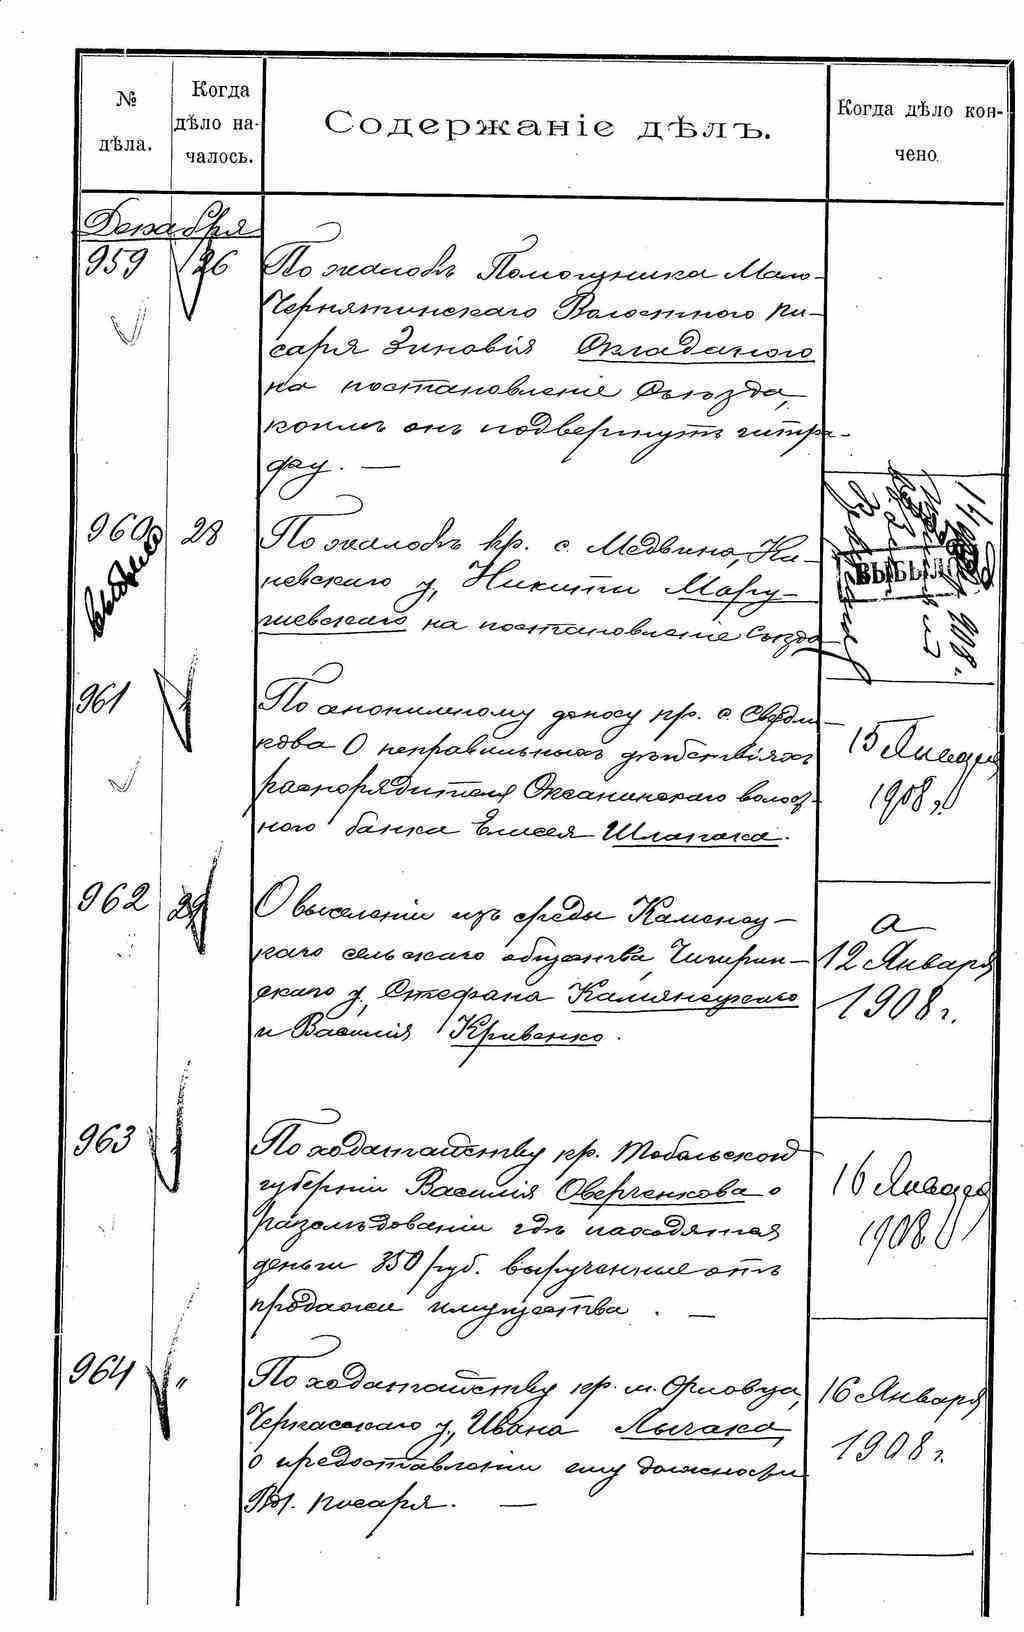 № дѣла.
Когда дѣло на-
чалось.
Содержаніе дѣлъ.
Когда дѣло кон-
чено.
Декабря
959 126
По жалобѣ Помощника Мало-
Чернятинскаго Волостного пи-
саря Зиновія Окладного
на постановленіе Съѣзда,
коимъ онъ подвергнутъ штра-
фу. —
960 28
выбыло
По жалобѣ кр. с. Медвина, Ка-
невскаго у, Никиты Мару-
шевскаго на постановленіе Съѣзда
ВЫБЫЛО
1908.
961
По анонимному доносу кр. с.
кова О неправильныхъ дѣйствіяхъ
распорядителя Оксанинскаго волост-
ного банка Елисея Шлапака.
15 Января
1908 г.
962 29
О выселеніи изъ среды Каменец-
каго сельскаго общества, Чигирин-
скаго у, Стефана Камянецкаго
и Василія Кривенко.
12 Января
1908 г.
963 "
По ходатайству кр. Тобольской
губерніи Василія Оверченкова о
разслѣдованіи гдѣ находятся
деньги 350 руб. вырученные отъ
продажи имущества. —
16 Января
1908.
964 "
По ходатайству кр. м. Орловца,
Черкасскаго у, Ивана Лычака,
о предоставленіи ему должности
Вол. писаря. —
16 Января
1908 г.